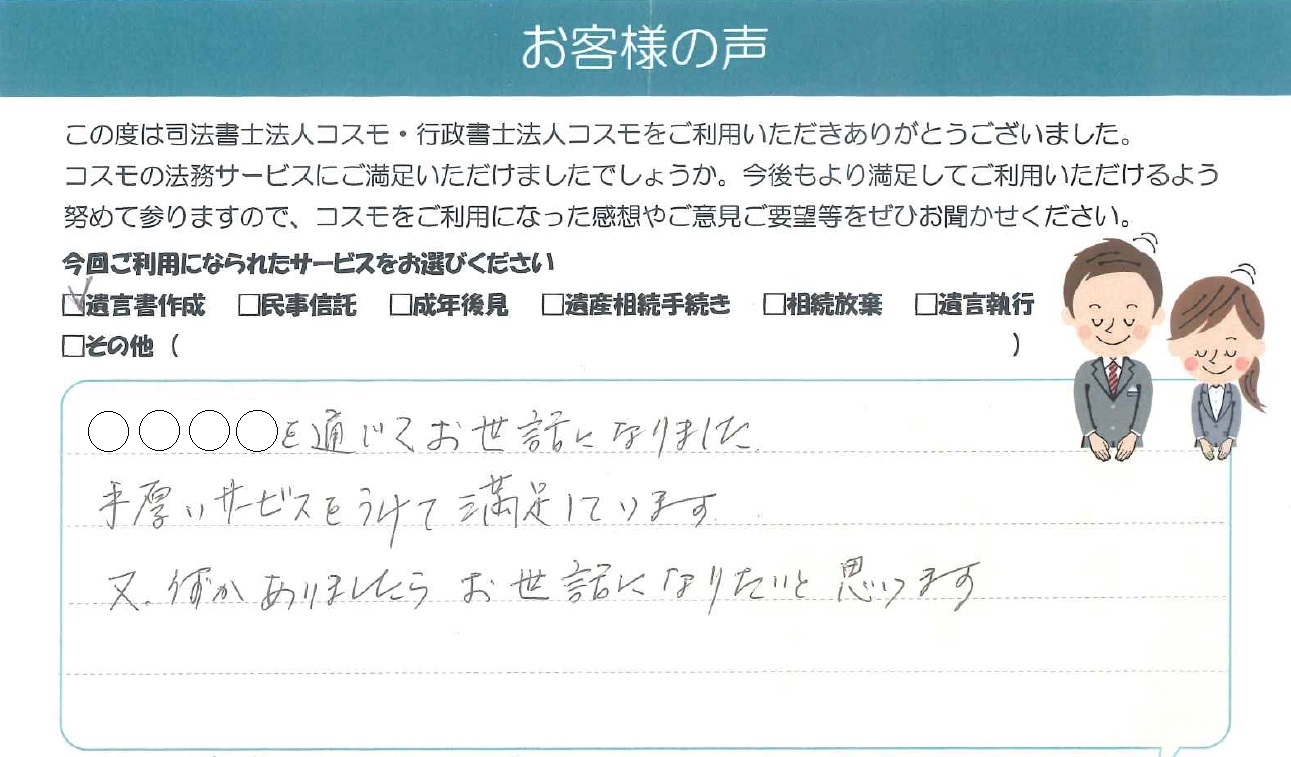 お客様の声
この度は司法書士法人コスモ・行政書士法人コスモをご利用いただきありがとうございました。
コスモの法務サービスにご満足いただけましたでしょうか。今後もより満足してご利用いただけるよう
努めて参りますので、コスモをご利用になった感想やご意見ご要望等をぜひお聞かせください。
今回ご利用になられたサービスをお選びください
☑遺言書作成 □民事信託 □成年後見 □遺産相続手続き □相続放棄 □遺言執行
□その他（ ）
○○○○を通じてお世話になりました
手厚いサービスをうけて満足しています
又、何かありましたらお世話になりたいと思います